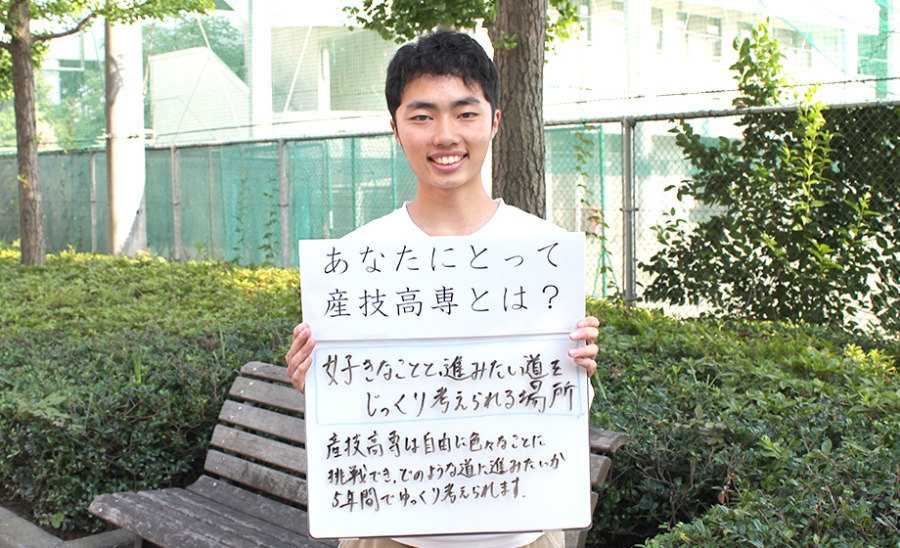 あなたにとって
産技高専とは？
好きなことと、進みたい道を
じっくり考えられる場所
産技高専は自由に色々なことに
挑戦でき、どのような道に進みたいか
5年間でゆっくり考えられます。